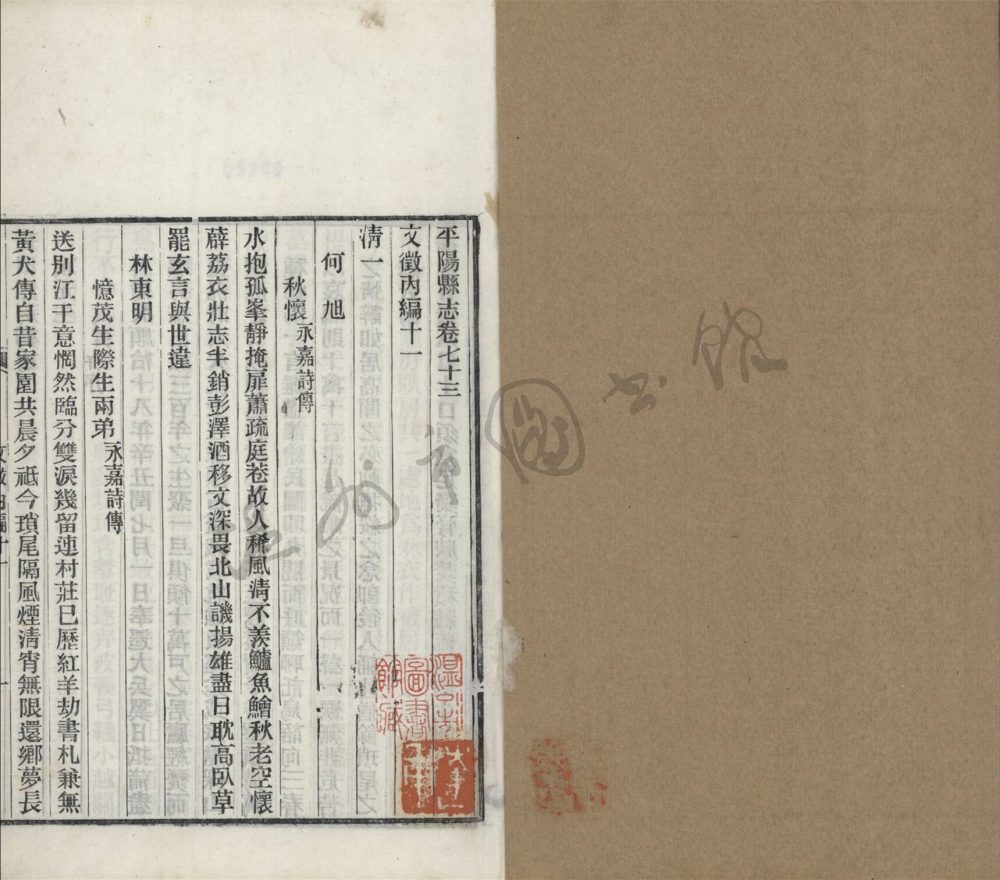 平陽縣志卷七十三
文徵內編十一
清一
何旭
秋懷永嘉詩傳
水抱孤峯靜掩扉蕭疏庭巷故人稀風清不羨鱸魚鱠秋老空懷
薜荔衣壯志半銷彭澤酒移文深畏北山譏揚雄盡日耽高臥草
罷玄言與世違
林東明
憶茂生際生兩弟永嘉詩傳
送別江干意惘然臨分雙淚幾留連村莊已歷紅羊劫書札兼無
黃犬傳自昔家園共晨夕祗今瑣尾隔風煙清宵無限還鄉夢長
溫州
圖書
館藏
圖書館